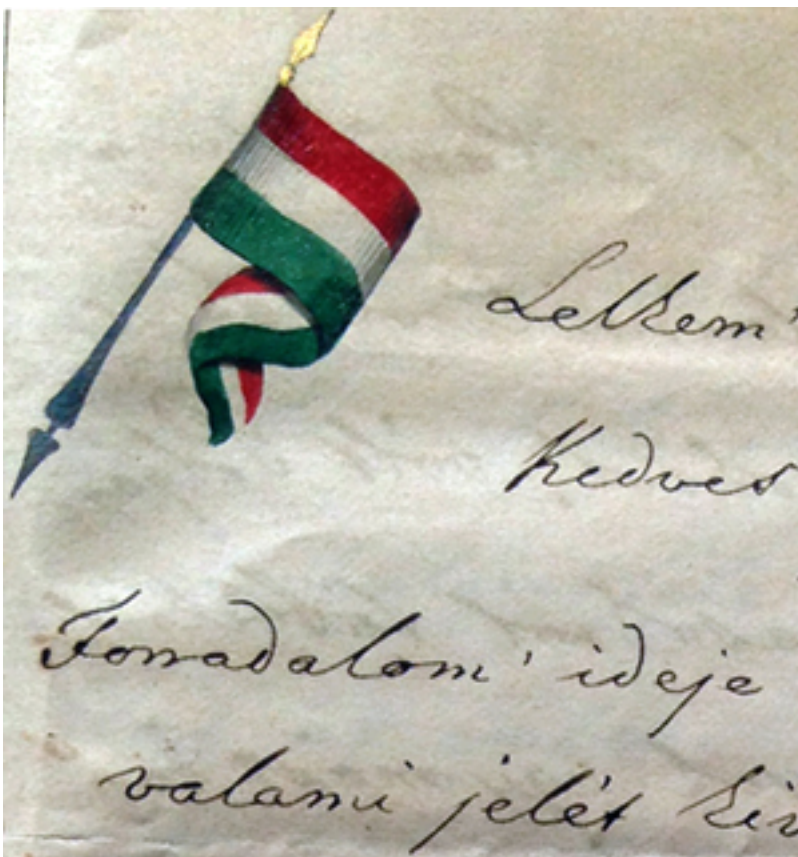 Lelkem'
Kedves
Forradalom' ideje
valami jelét